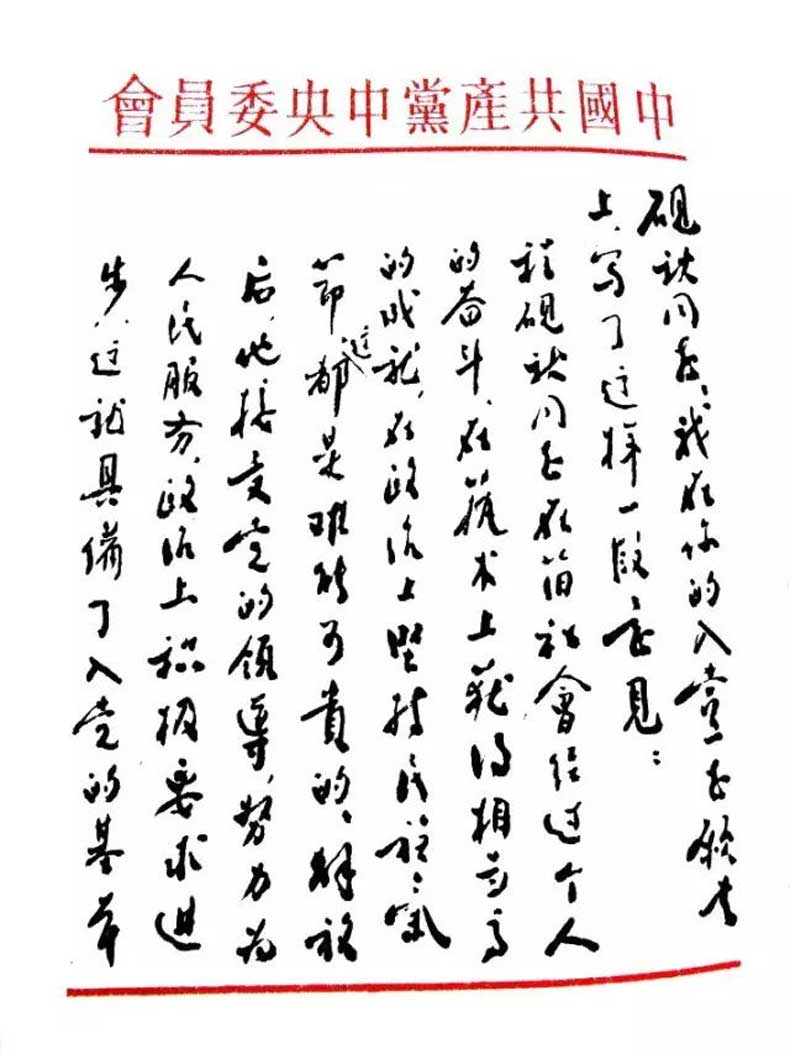 中國共產黨中央委員會
砚秋同志：我在你的入党志愿书
上，写了这样一段意见：
程砚秋同志在旧社會经过个人
的奋斗，在艺术上获得相当高
的成就，在政治上坚持民族氣
节，这都是难能可贵的。解放
后，他接受党的领导，努力为
人民服务，政治上积极要求进
步。这就具備了入党的基本